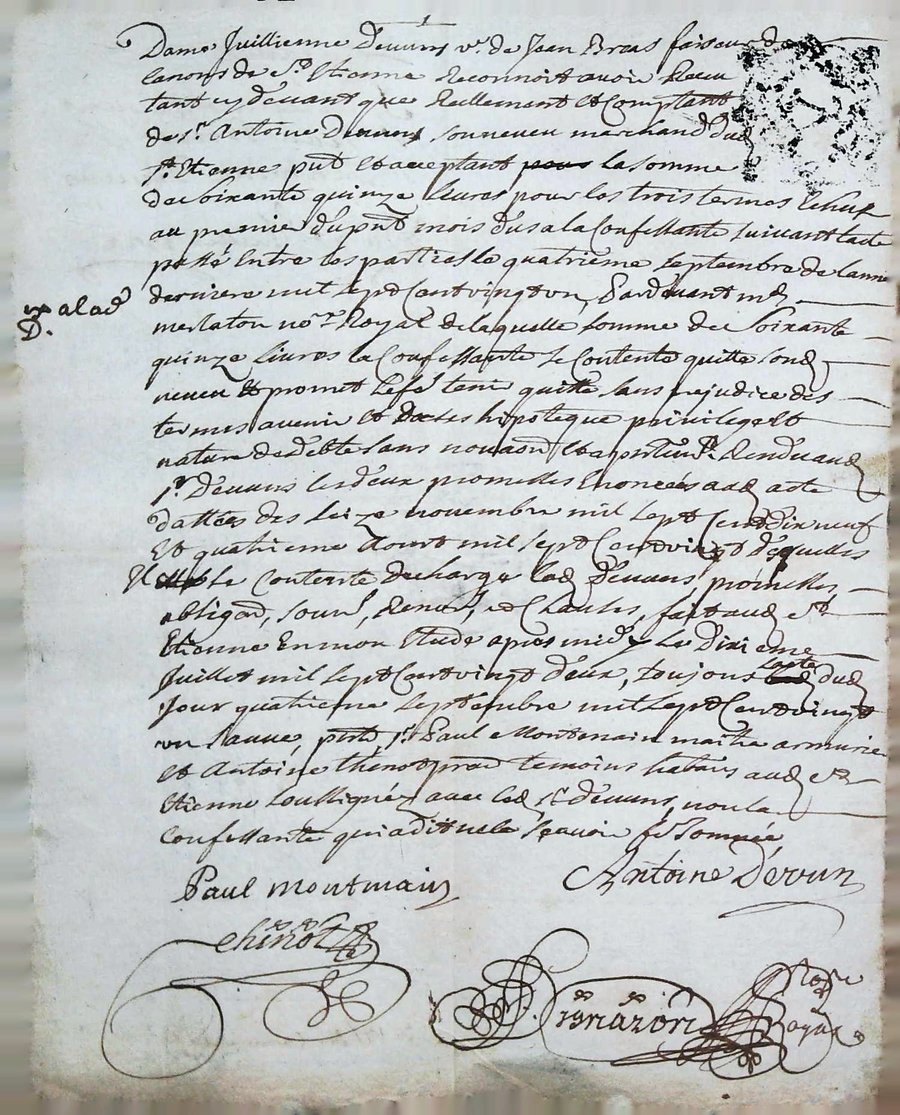 Dame Juillienne Devuns vᵉ. de Jean Breas faiseur de
canons de Sᵗ. Etienne Reconnoit avoir Receu
tant cy devant que Reellement et Comptant
de sʳ. Antoine Devuns son neveu marchand dud
Sᵗ. Etienne pnt et acceptant la somme
de soixante quinze livres pour les trois termes echus
au premier du pnt mois dus a la Confessante suivant lacte
passé Entre les parties le quatrieme septembre de lannee
derniere mil sept Cent vingt un, Pardevant mᵉ
merlaton noʳᵉ Royal de laquelle somme de soixante
quinze livres la Confessante se Contente quitte sond
neveu et promet le fᵉ tenir quitte sans prejudice des
termes avenir et de ses hipoteque privilege et
nature de debte sans novaon et a Rendu aud
sʳ. Devuns les deux promesses Enoncées aud acte
dattées des seize novembre mil sept Cent dix neuf
Et quatrieme aoust mil sept Cent vingt desquelles
Elle se Contente decharge led Devuns, promettes,
obligaon, soum, Renon, et Clauses, fait aud Sᵗ
Etienne En mon Etude apres midy le Dixieme
Juillet mil sept Cent vingt deux, toujours lacte dud
Jour quatrieme septembre mil sept Cent vingt
un sauve, pnts sʳ. Paul Montmain maitre armurier
et Antoine thenot temoins habits aud Sᵗ
Etienne soussignés avec led sʳ devuns, non la
Confessante qui a dit ne le sçavoir fᵉ sommée
Paul montmain
Antoine Devun
thenot